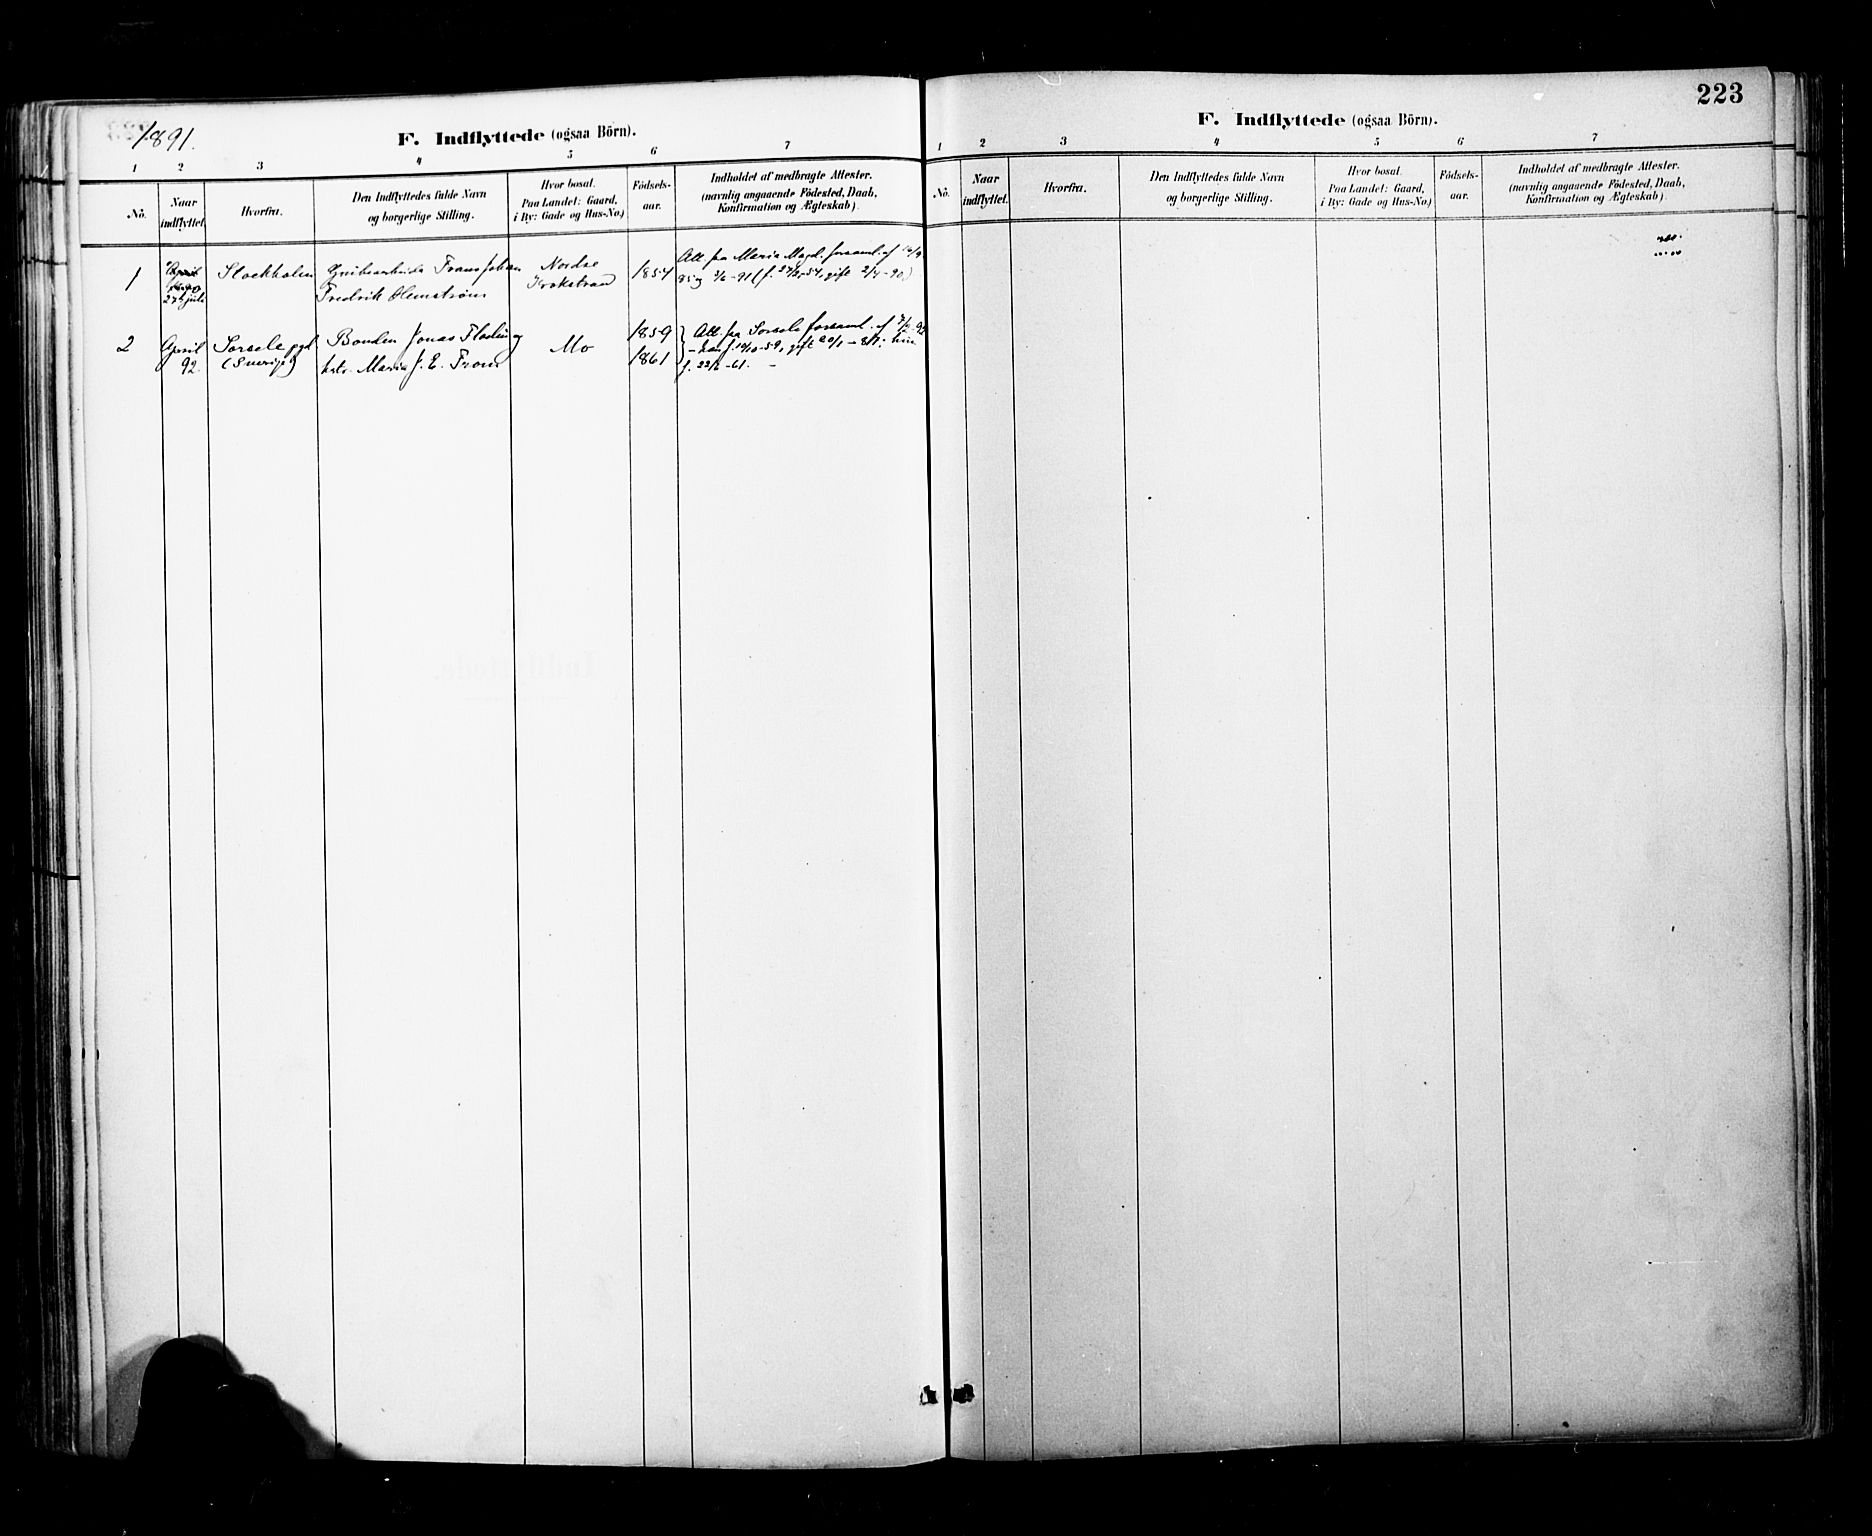 1891.
F. Indflyttede (ogsaa Börn).
1 2 3 4 5 6 7
No.
Naar
indflyttet.
Hvorfra.
Den Indflyttedes fulde Navn
og borgerlige Stilling.
Hvor bosat.
Paa Landet: Gaard,
i By: Gade og Hus-No.)
Födsels-
aar.
Indholdet af medbragte Attester.
(navnlig angaaende Födested, Daab,
Konfirmation og Ægteskab).
1
27de juli
Stockholm
Grubearbeider Frans Johan
Fredrik Almström
Nordre
Krokstrand
1854
Att. fra Maria Magd. forsaml. af
85 og 2/6-91 (f. 27/5-54, gift 2/4-90.)
2
April
92.
Sorsele pgd
(Sverige)
Bonden Jonas og
hstr. Maria J. E. From
Mo
1859
1861
Att. fra Sorsele forsaml. af
- han f. 10/10-59, gift
f. 22/6-61. -
223
F. Indflyttede (ogsaa Börn).
1 2 3 4 5 6 7
No.
Naar
indflyttet.
Hvorfra.
Den Indflyttedes fulde Navn
og borgerlige Stilling.
Hvor bosat.
Paa Landet: Gaard,
i By: Gade og Hus-No.)
Födsels-
aar.
Indholdet af medbragte Attester.
(navnlig angaaende Födested, Daab,
Konfirmation og Ægteskab).